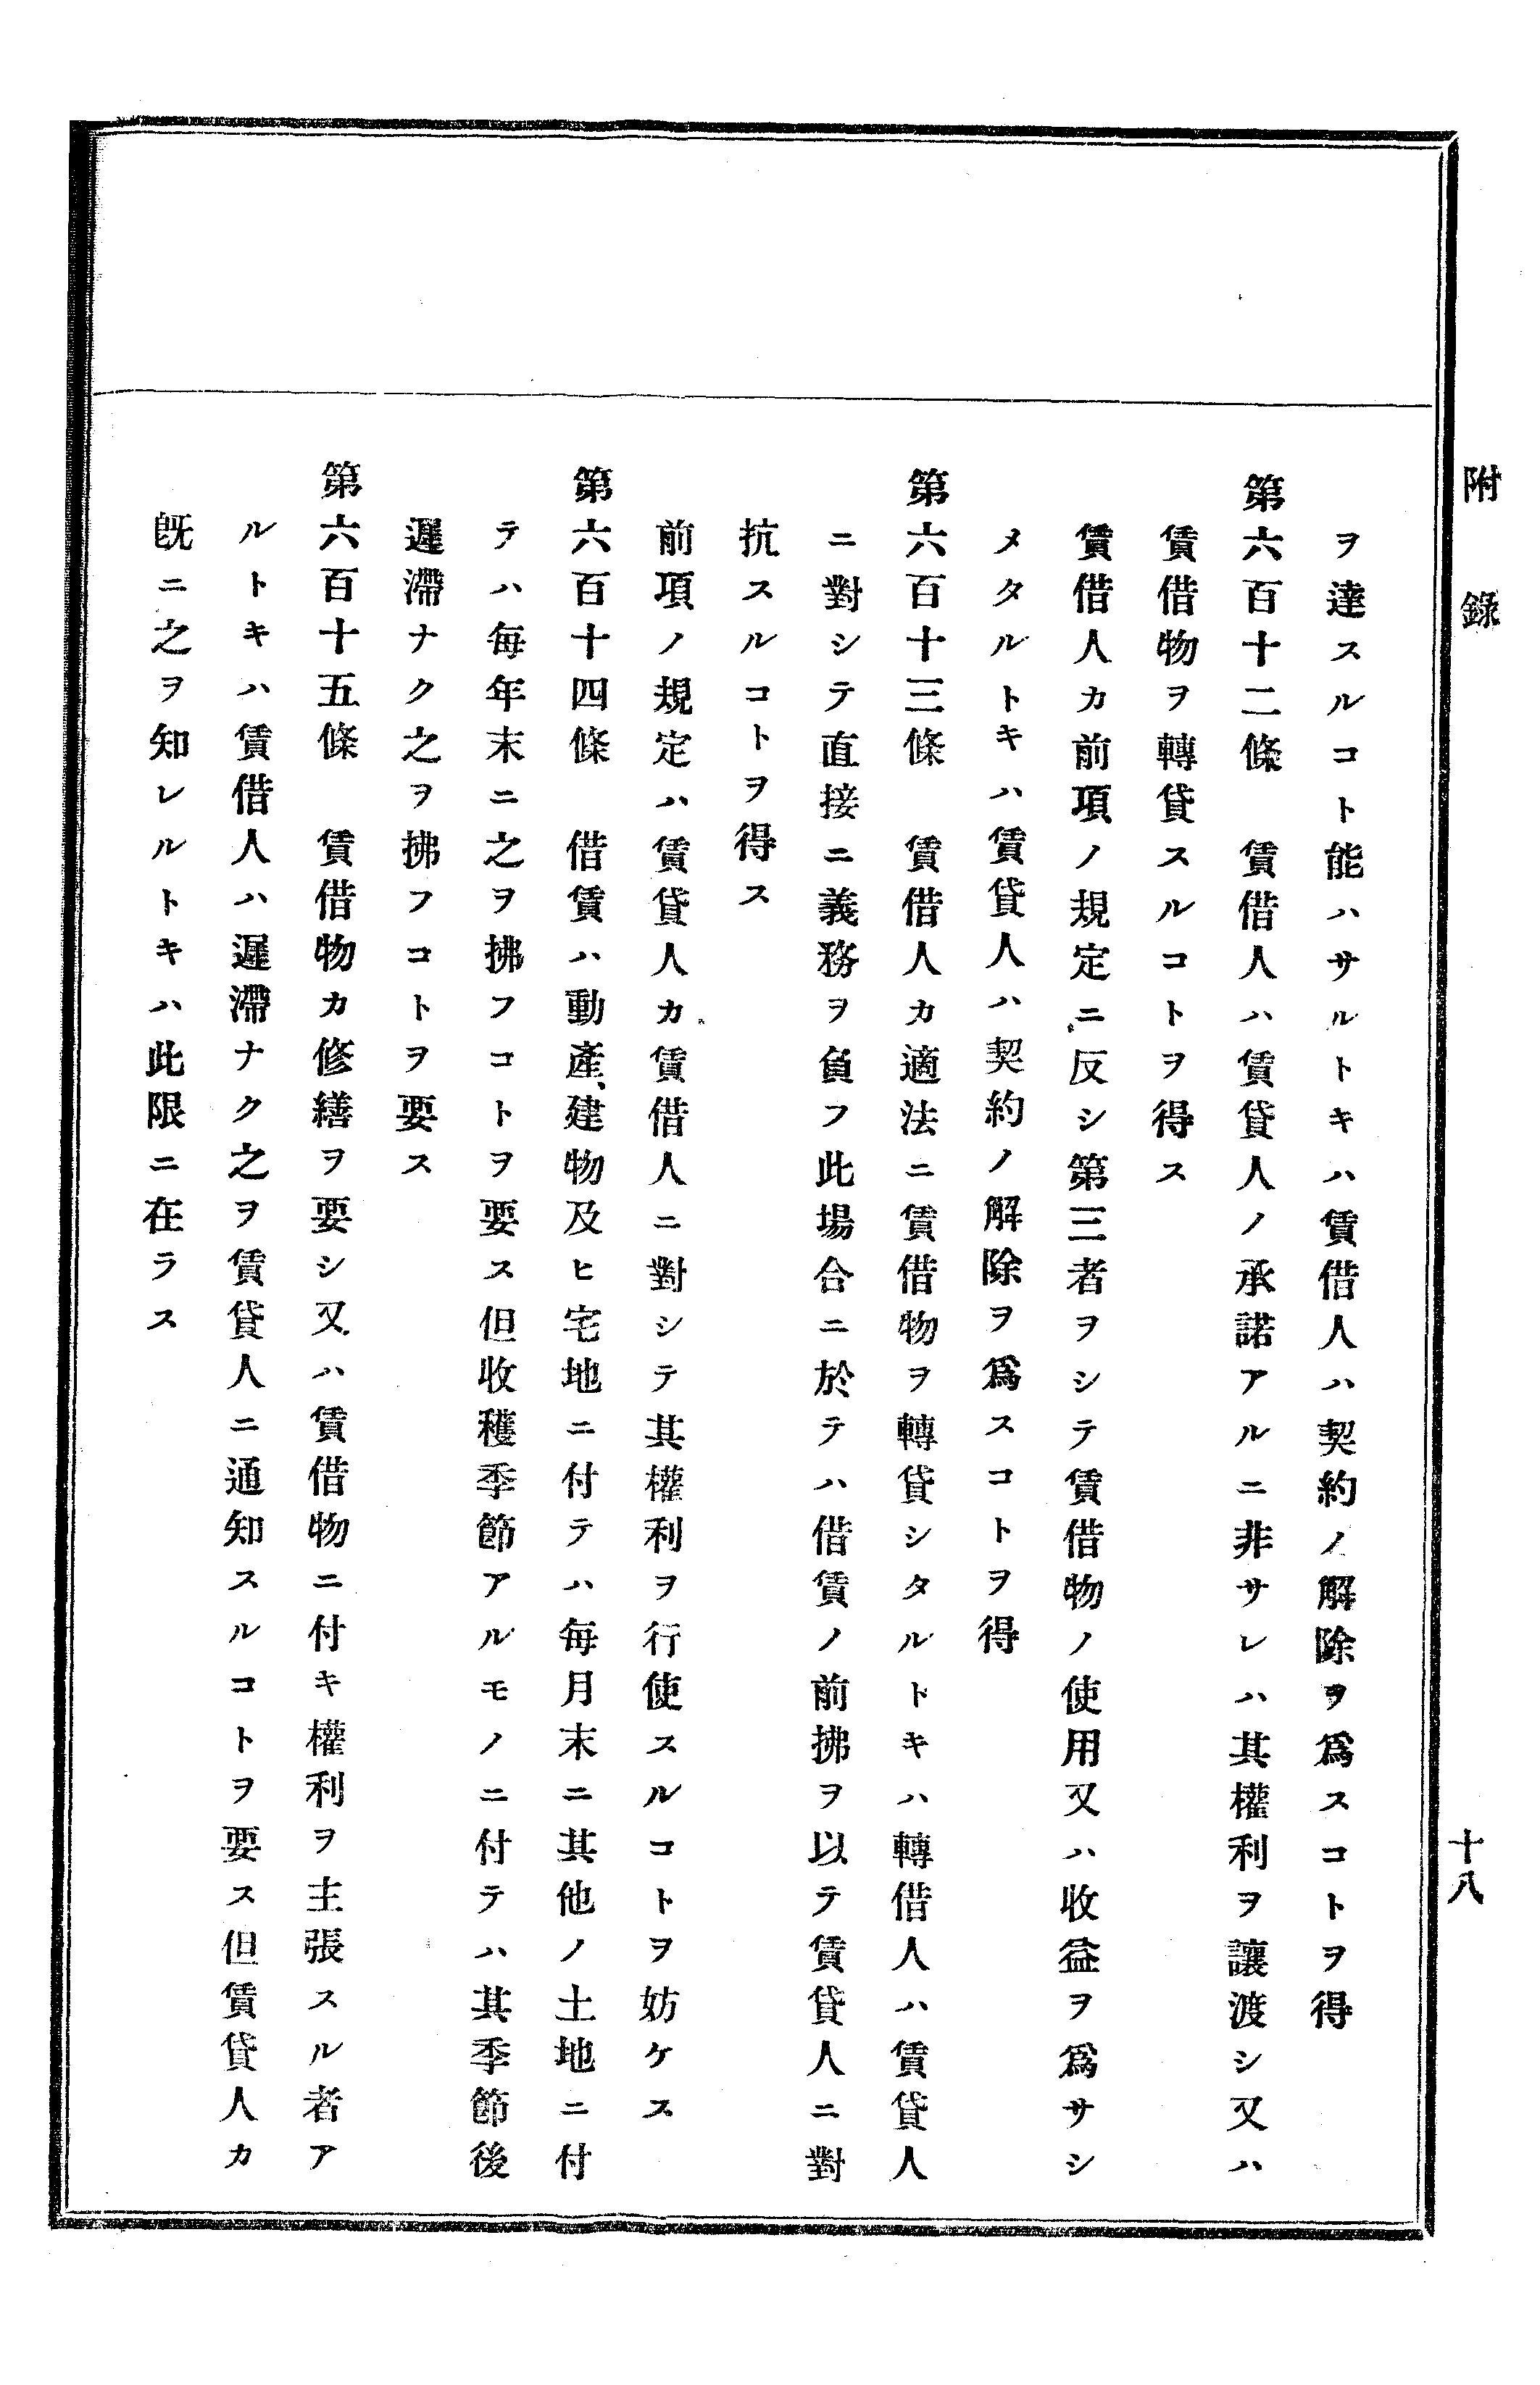 附錄
十八
ヲ達スルコト能ハサルトキハ賃借人ハ契約ノ解除ヲ爲スコトヲ得
第六百十二條　賃借人ハ賃貸人ノ承諾アルニ非サレハ其權利ヲ讓渡シ又ハ
賃借物ヲ轉貸スルコトヲ得ス
賃借人カ前項ノ規定ニ反シ第三者ヲシテ賃借物ノ使用又ハ收益ヲ爲サシ
メタルトキハ賃貸人ハ契約ノ解除ヲ爲スコトヲ得
第六百十三條　賃借人カ適法ニ賃借物ヲ轉貸シタルドキハ轉借人ハ賃貸人
ニ對シテ直接ニ義務ヲ負フ此場合ニ於テハ借賃ノ前拂ヲ以テ賃貸人ニ對
抗スルコトヲ得ス
前項ノ規定ハ賃貸人カ賃借人ニ對シテ其權利ヲ行使スルコトヲ妨ケス
第六百十四條　借賃ハ動產、建物及ヒ宅地ニ付テハ每月末ニ其他ノ土地ニ付
テハ每年末ニ之ヲ拂フコトヲ要ス但收穫季節アルモノニ付テハ其季節後
遲滯ナク之ヲ拂フコトヲ要ス
第六百十五條　賃借物カ修繕ヲ要シ又ハ賃借物ニ付キ權利ヲ主張スル者ア
ルトキハ賃借人ハ遲滯ナク之ヲ賃貸人ニ通知スルコトヲ要ス但賃貸人カ
既ニ之ヲ知レルトキハ此限ニ在ラス